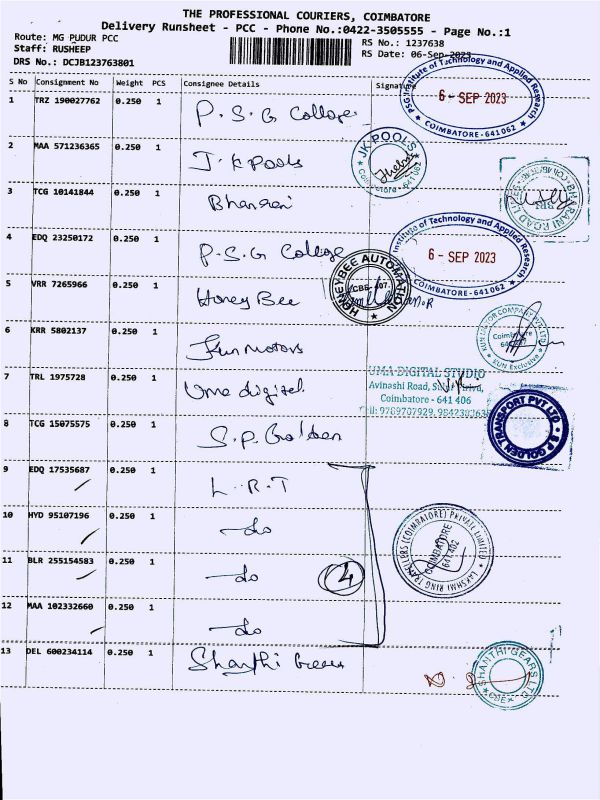 THE PROFESSIONAL COURIERS, COIMBATORE
Delivery Runsheet - PCC - Phone No.:0422-3505555 - Page No.:1
Route: MG PUDUR PCC
Staff: RUSHEEP
DRS No.: DCJB123763801
RS No.: 1237638
RS Date: 06-Sep-2023
S No Consignment No Weight PCS Consignee Details Signature
1 TRZ 190027762 0.250 1 P.S.G College
PSG Institute of Technology and Applied Research
6 - SEP 2023
COIMBATORE - 641 062
2 MAA 571236365 0.250 1 J.K Pools
JK POOLS
Coimbatore - 641 402
3 TCG 10141844 0.250 1 Bharani
BHARANI ROAD
4 EDQ 23250172 0.250 1 P.S.G College
Institute of Technology and Applied Research
6 - SEP 2023
COIMBATORE - 641 062
5 VRR 7265966 0.250 1 Honey Bee
HONEYBEE AUTOMATION
6 KRR 5802137 0.250 1 Fun Motors
KUN MOTOR COMPANY PVT LTD
Coimbatore
KUN Exclusive
7 TRL 1975728 0.250 1 Uma digital
UMA DIGITAL STUDIO
Avinashi Road,
Coimbatore - 641 406
8 TCG 15075575 0.250 1 S.P. Golden
S.P. GOLDEN TRANSPORT PVT LTD
9 EDQ 17535687 0.250 1 L.R.T
10 HYD 95107196 0.250 1 -do
11 BLR 255154583 0.250 1 -do 4
LAKSHMI RING TRAVELLERS (COIMBATORE) PRIVATE LIMITED
COIMBATORE
641 402
12 MAA 102332660 0.250 1 -do
13 DEL 600234114 0.250 1 Shanthi Gears
SHANTHI GEARS LTD
CBE